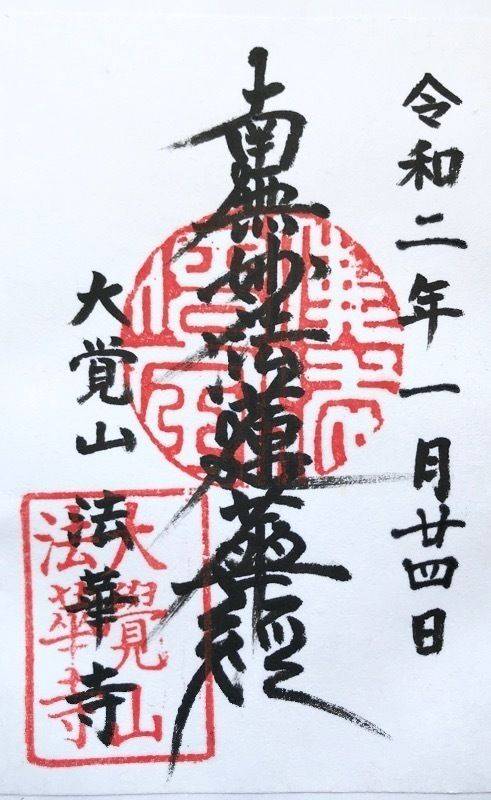 令和二年一月廿四日
南無妙法蓮華経
大覚山
法華寺
大覺山
法華寺